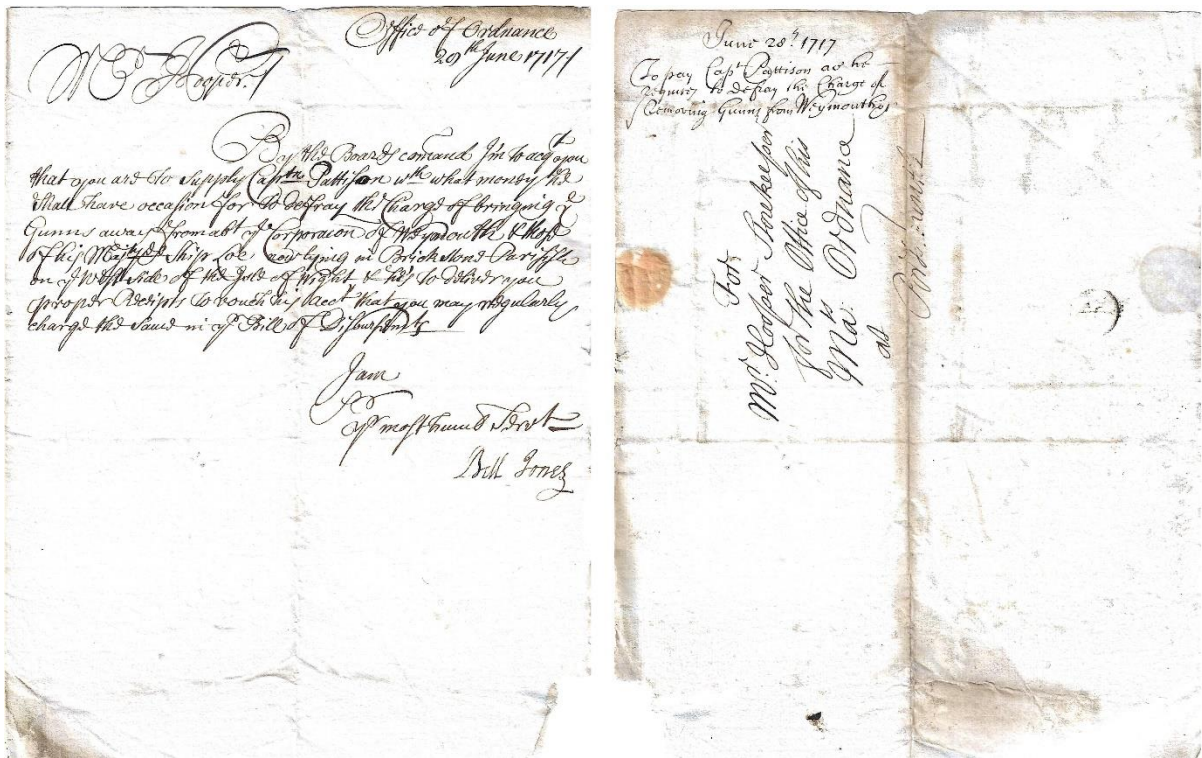 Office of Ordnance
29th June 1717
Mr Hooper
By the Boards comand I'm to acqt you
that you are to supply Captn Pattison wth what money he
shall have occasion for to defray the Charge of bringing ye
Gunns away from abt ye Corporacon of Weymouth & those
of his Majtys ship Loe now lying in Brickstone Parish
on ye West side of the Isle of Wight & he's to deliver you
proper Receipts to vouch his Acct that you may regularly
charge the same in yr Bill of Disbursmts
I am
Sr
yr most humb Servt
Bell Jones
June 28th 1717
To pay Capt Pattison as he
requires to defray the Charge of
Removing Gunns from Weymouth
For
Mr Hooper Storekeeper
for the Office of his
Mats Ordnance
at